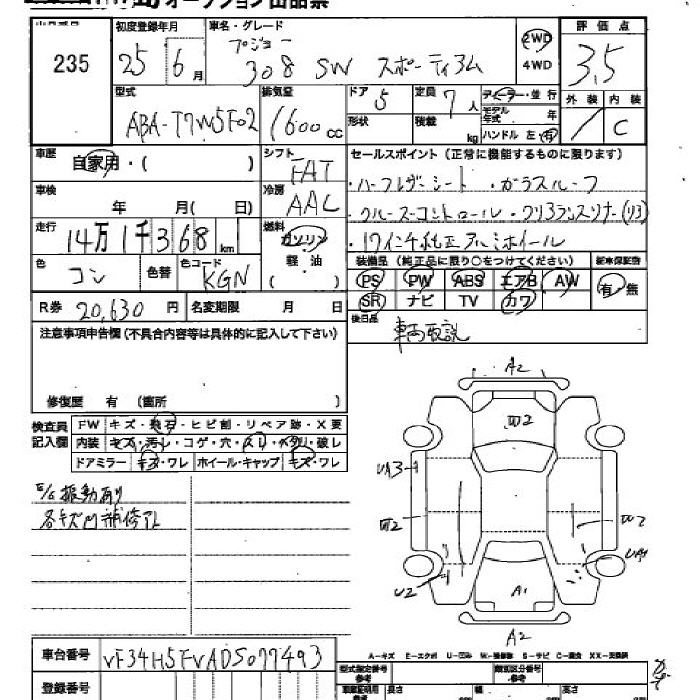 オークション出品票
出品番号 初度登録年月 車名・グレード 評価点
235 25年 6月 プジョー 308 SW スポーティアム 2WD 4WD 3.5
型式 排気量 ドア 5 定員 7人 ディーラー・並行 外装 内装
ABA-T7W5F02 1600cc 形状 積載 kg モデル年式 年 C
ハンドル 左・右
車歴 自家用・( ) シフト FAT セールスポイント(正常に機能するものに限ります)
車検 年 月( 日) 冷房 AAC ・ハーフレザーシート ・ガラスルーフ
・クルーズコントロール ・クリアランスソナー(リア)
走行 14万1千368km 燃料 ガソリン ・17インチ純正アルミホイール
軽油 ( )
色 コン 色替 色コード KGN 装備品(純正品に限り○をつけてください) 新車保証書
PS PW ABS エアB AW 有・無
R券 20,630円 名変期限 月 日 SR ナビ TV カワ
注意事項申告欄(不具合内容等は具体的に記入して下さい) 後日品
車両取説
修復歴 有 (箇所 )
検査員記入欄 FW キズ・飛石・ヒビ割・リペア跡・X要
内装 キズ・汚レ・コゲ・穴・スレ・ヘタリ・破レ
ドアミラー キズ・ワレ ホイール・キャップ キズ・ワレ
E/G振動あり
各キズ凹補修アト
A2
W2
UA3
W2 W2
U2 UA1
A1
A2
A-キズ E-エクボ U-凹み W-補修跡 S-サビ C-腐食 XX-交換済
車台番号 VF34H5FVADS077493
登録番号
型式指定番号 参考 類別区分番号 参考
長さ 幅 高さ